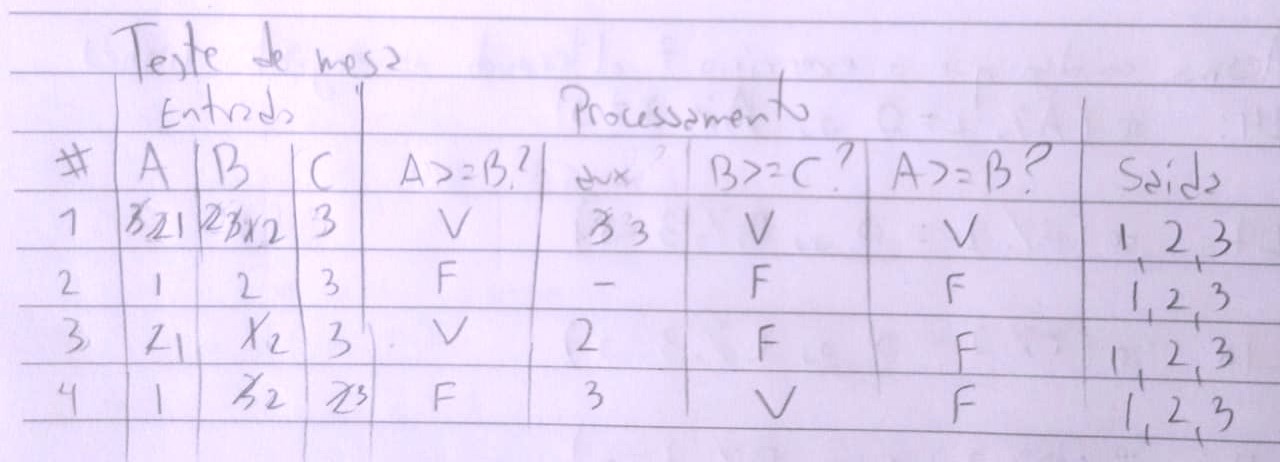 Teste de mesa
Entrada Processamento
# A B C A>=B? aux B>=C? A>=B? Saída
1 321 23x2 3 V 3 3 V V 1, 2, 3
2 1 2 3 F - F F 1, 2, 3
3 21 x2 3 V 2 F F 1, 2, 3
4 1 32 23 F 3 V F 1, 2, 3